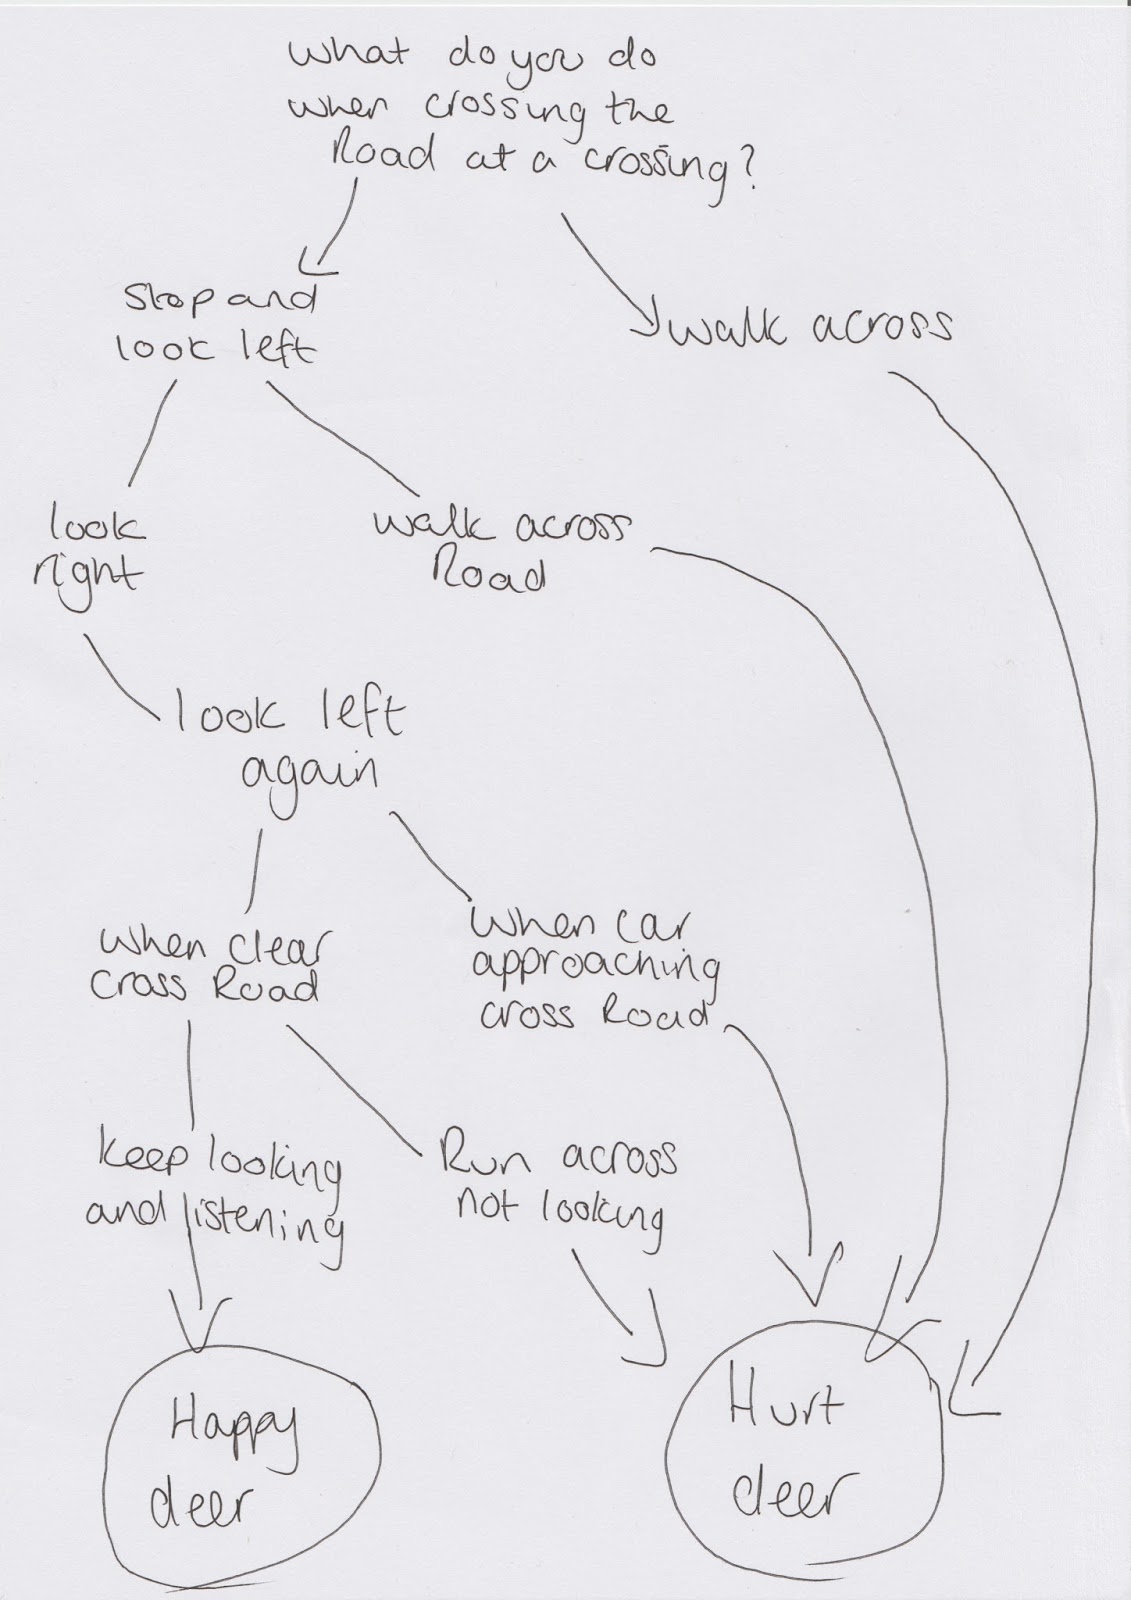 What do you do
when crossing the
Road at a crossing?
Stop and
look left
walk across
look
right
walk across
Road
look left
again
when clear
cross Road
when car
approaching
cross Road
keep looking
and listening
Run across
not looking
Happy
deer
Hurt
deer